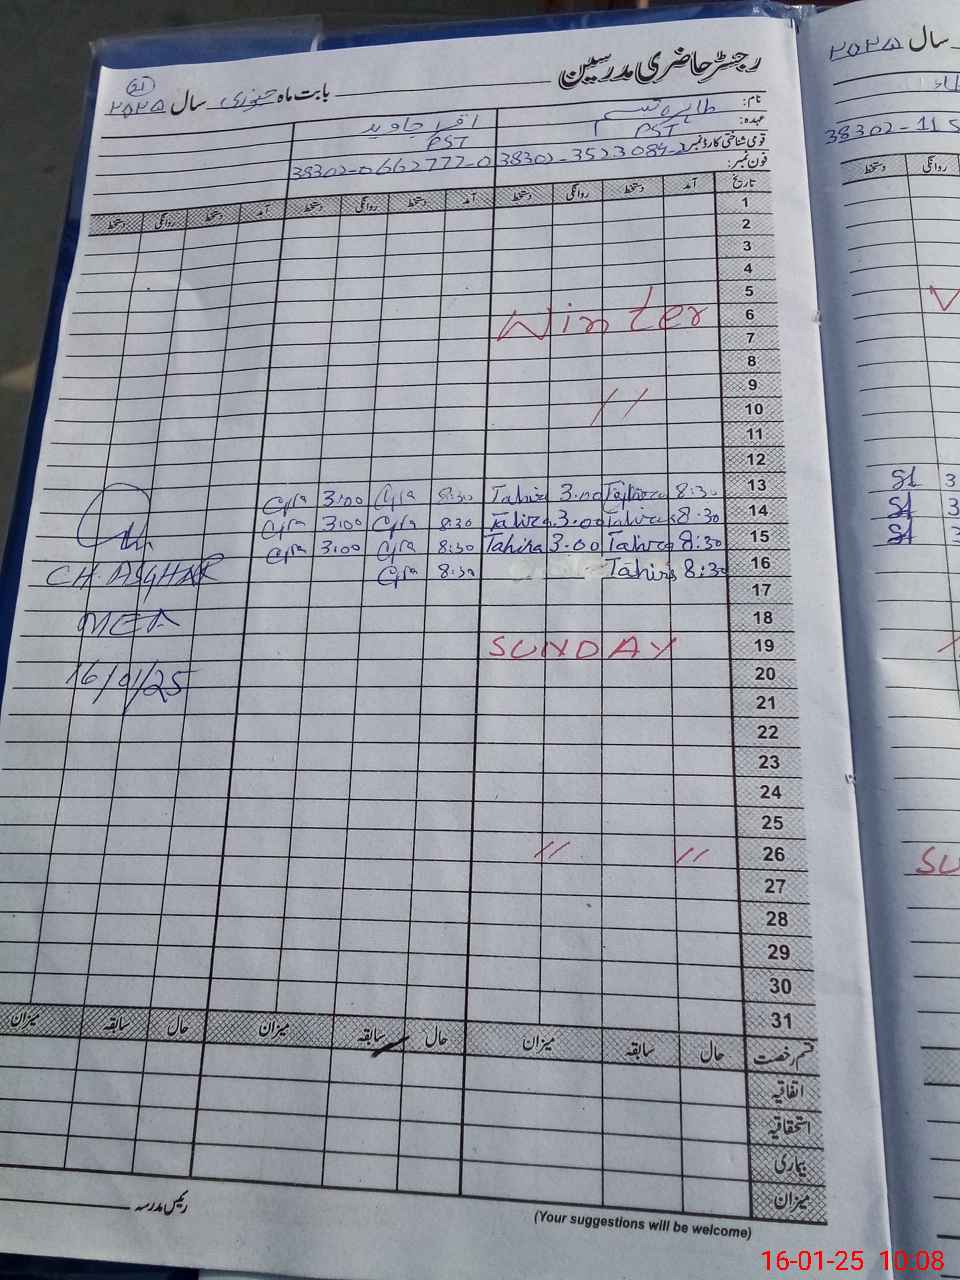 رجسٹر حاضری مدرسین
بابت ماہ جنوری سال ۲۰۲۵
21
نام: طاہرہ اقراء جاوید
عہدہ: PST PST
قومی شناختی کارڈ نمبر: 38302-3523084-2 38302-0662777-0
فون نمبر:
تاریخ آمد دستخط روانگی دستخط آمد دستخط روانگی دستخط آمد دستخط روانگی دستخط
1
2
3
4
5
6 Winter
7
8
9
10 //
11
12
13 8:30 Tahira 3.00 Tahira 8:30 3:00
14 8:30 Tahira 3.00 Tahira 8:30 3:00
15 8:30 Tahira 3.00 Tahira 8:30 3:00
16 8:30 Tahira 8:30
CH. ASGHAR
17
18
MEA
19 SUNDAY
20
16/01/25
21
22
23
24
25
26 // //
27
28
29
30
31
قسم رخصت حال سابقہ میزان حال سابقہ میزان حال سابقہ میزان
اتفاقیہ
استحقاقیہ
بیماری
میزان
رئیس مدرسہ
(Your suggestions will be welcome)
سال ۲۰۲۵
38302-115
روانگی دستخط
3
3
3
SU
16-01-25 10:08